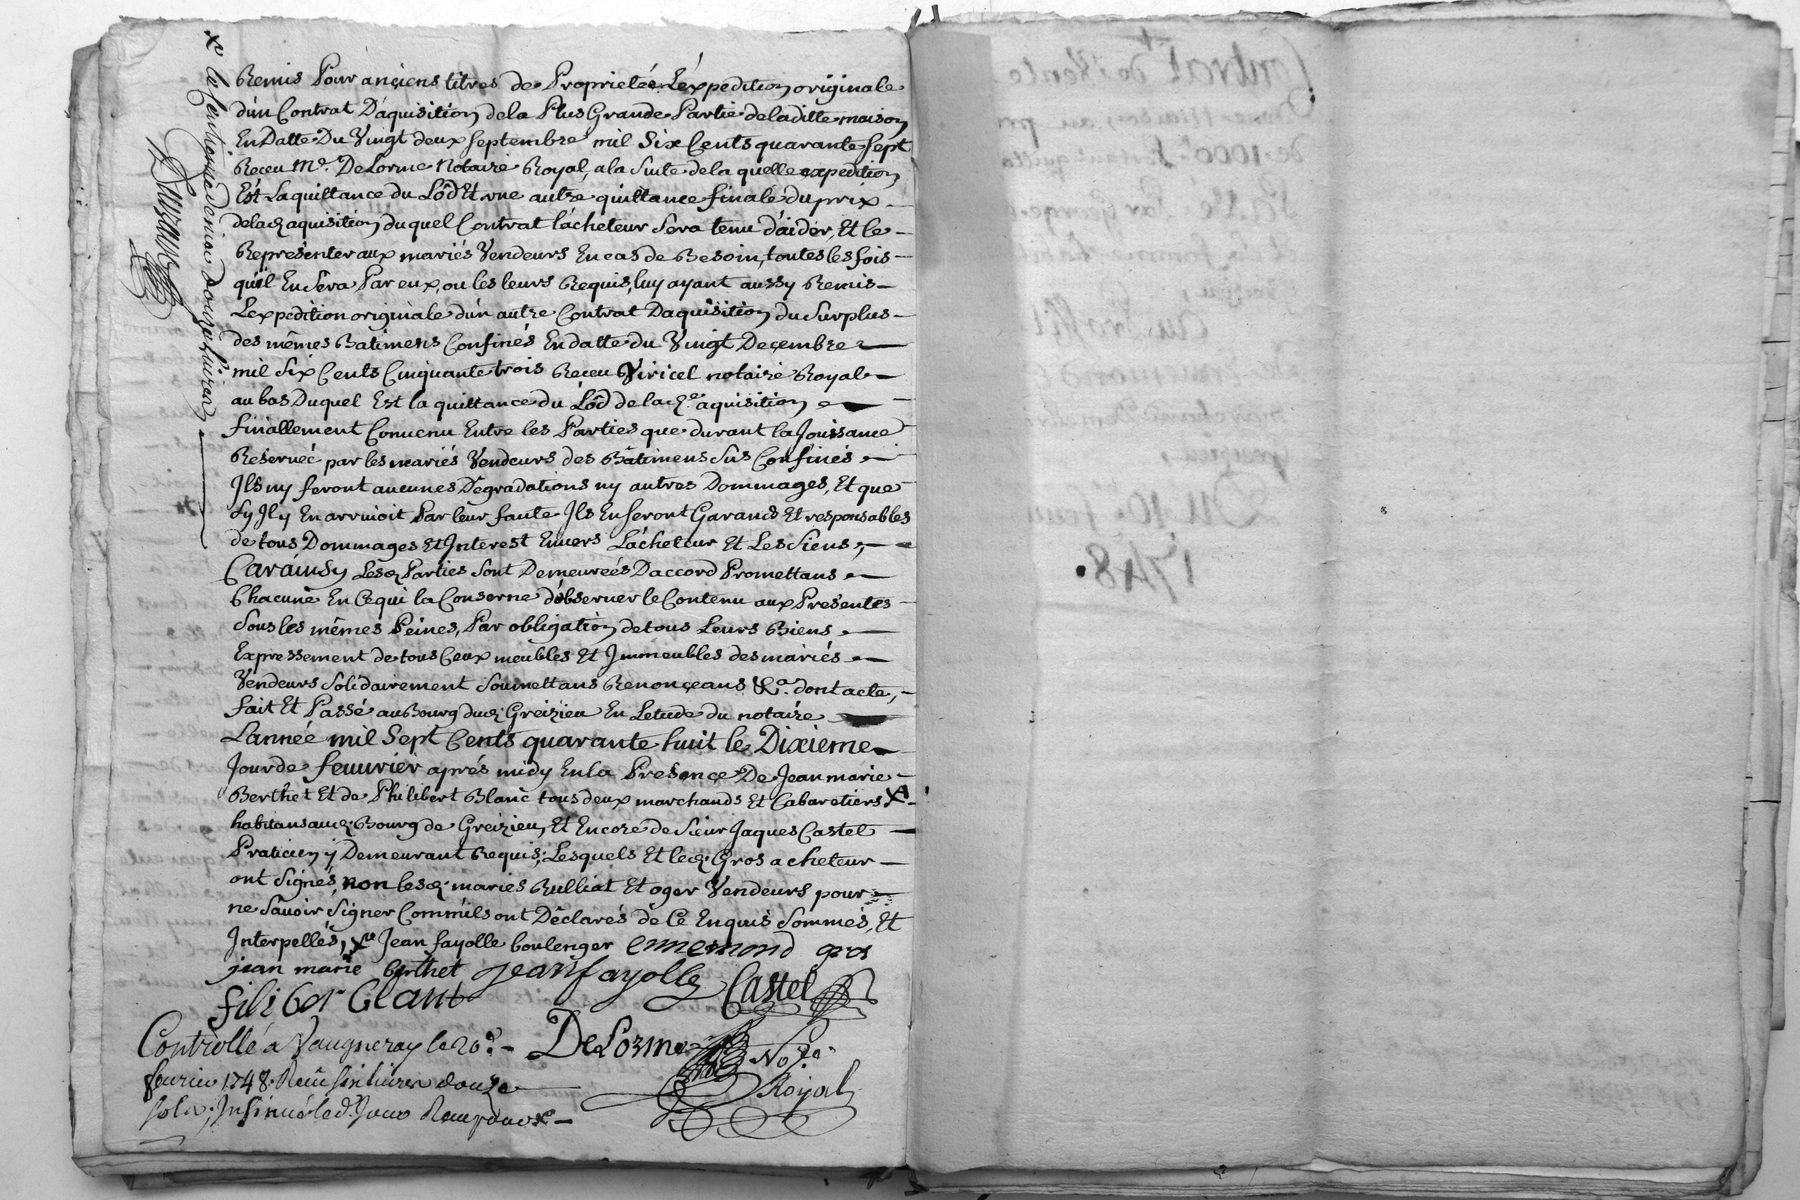 Remis Pour ançiens titres de Proprietée Léxpedition originale
d'ún Contrat Dáquisition dela Plus Grande Partie deladitte maison
En Datte Du Vingt deux septembre mil Six Cents quarante sept
Receu Me. DeLorme Notaire Royal, ala Suite dela quelle expedition
Est Laquittance du Lôd Et une autre quittance finale du prix
delad. aquisition duquel Contrat lácheteur Sera tenu dáider, Et le
Representer aux mariés Vendeurs En cas de Besoin, toutes les fois
quil En Sera Par eux, ou les leurs Requis, luy ayant aussy Remis
Lexpedition originale d'ún autre Contrat Daquisition du Surplus
des mêmes Batimens Confinés En datte du Vingt Deçembre
mil Six Cents Cinquante trois Receu Viricel notaire Royal
au bas Duquel Est la quittance du Lôd de lad.e aquisition
finallement Convenu Entre les Parties que durant la Jouissance
Reservéé par les mariés Vendeurs des Bâtimens Sus Confinés
Ils ny feront aucunes Dégradations ny autres Dommages, Et que
Sy Il y En arrivoit Par leur faute Ils En seront Garands Et responsables
de tous Dommages Et Interest Envers Lácheteur Et Les Siens,
Caráinsy Lesd. Parties Sont Demeureés Daccord Promettans
Chacune En Cequi la Conserne d'observer le Contenu aux Presentes
Sous les mêmes Peines, Par obligation de tous Leurs Biens
Expressement de tous Ceux meubles Et Immeubles des mariés
Vendeurs Solidairement Soumettans Renonçeans &a. dont acte,
fait Et Passé au Bourg dud. Greizieu En Letude du notaire
Lannée mil Sept Cents quarante huit le Dixieme
Jour de feuvrier aprés midy En la Presençe De Jean marie
Berthet Et de Philibert Blanc tous deux marchands Et Cabaretiers X
habitans aud. Bourg de Greizieu, Et Encore de Sieur Jaques Castel
Praticien y Demeurant Requis, Lesquels Et led. Gros acheteur
ont Signés, non lesd. mariés Rulliat Et oger Vendeurs pour
ne Savoir Signer Comm'ils ont Déclarés de Ce Enquis Sommés, Et
Interpellés, X Jean fayolle boulenger ennemond gros
jean marie berthet Jean fayolle Castel
filiber blanc
DeLorme
No.re
Royal
Controllé a Vaugneray le 20e.
fevrier 1748. Receu six livres douze
sols, Insinué led. Jour
Contrat de Vente
1748.